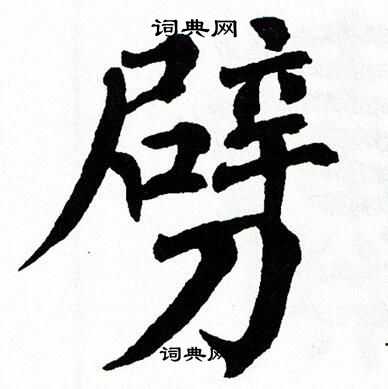 词典网
劈
词典网